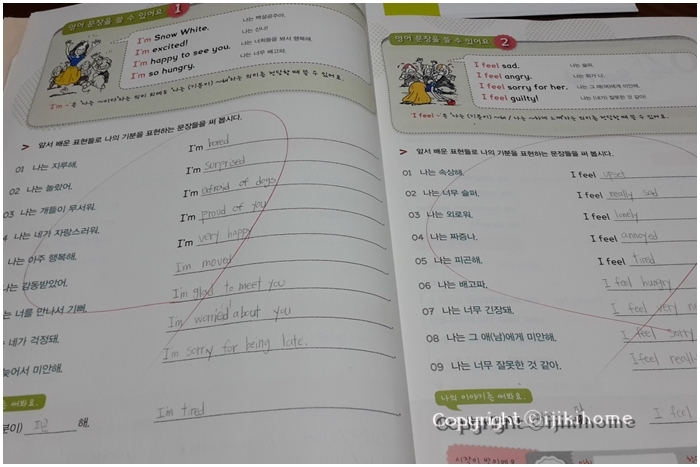 영어 문장을 쓸 수 있어요 1
I'm Snow White. 나는 백설공주야.
I'm excited! 나는 신나!
I'm happy to see you. 나는 너희들을 봐서 행복해.
I'm so hungry. 나는 너무 배고파.
앞서 배운 표현들로 나의 기분을 표현하는 문장들을 써 봅시다.
01 나는 지루해. I'm bored
02 나는 놀랐어. I'm surprised
03 나는 개들이 무서워. I'm afraid of dogs
4 나는 네가 자랑스러워. I'm proud of you
나는 아주 행복해. I'm very happy
나는 감동받았어. I'm moved
는 너를 만나서 기뻐. I'm glad to meet you
네가 걱정돼. I'm worried about you
늦어서 미안해. I'm sorry for being late.
해. I'm tired
영어 문장을 쓸 수 있어요 2
I feel sad. 나는 슬퍼.
I feel angry. 나는 화가 나.
I feel sorry for her. 나는 그 애(여)에게 미안해.
I feel guilty! 나는 (내가) 잘못한 것 같아!
앞서 배운 표현들로 나의 기분을 표현하는 문장들을 써 봅시다.
01 나는 속상해. I feel upset
02 나는 너무 슬퍼. I feel really sad
03 나는 외로워. I feel lonely
04 나는 짜증나. I feel annoyed
05 나는 피곤해. I feel tired
06 나는 배고파. I feel hungry
07 나는 너무 긴장돼. I feel very
08 나는 그 애(남)에게 미안해. I feel sorry
09 나는 너무 잘못한 것 같아. I feel reall
나의 이야기를 써봐요.
I feel
Copyright ⓒijikihome